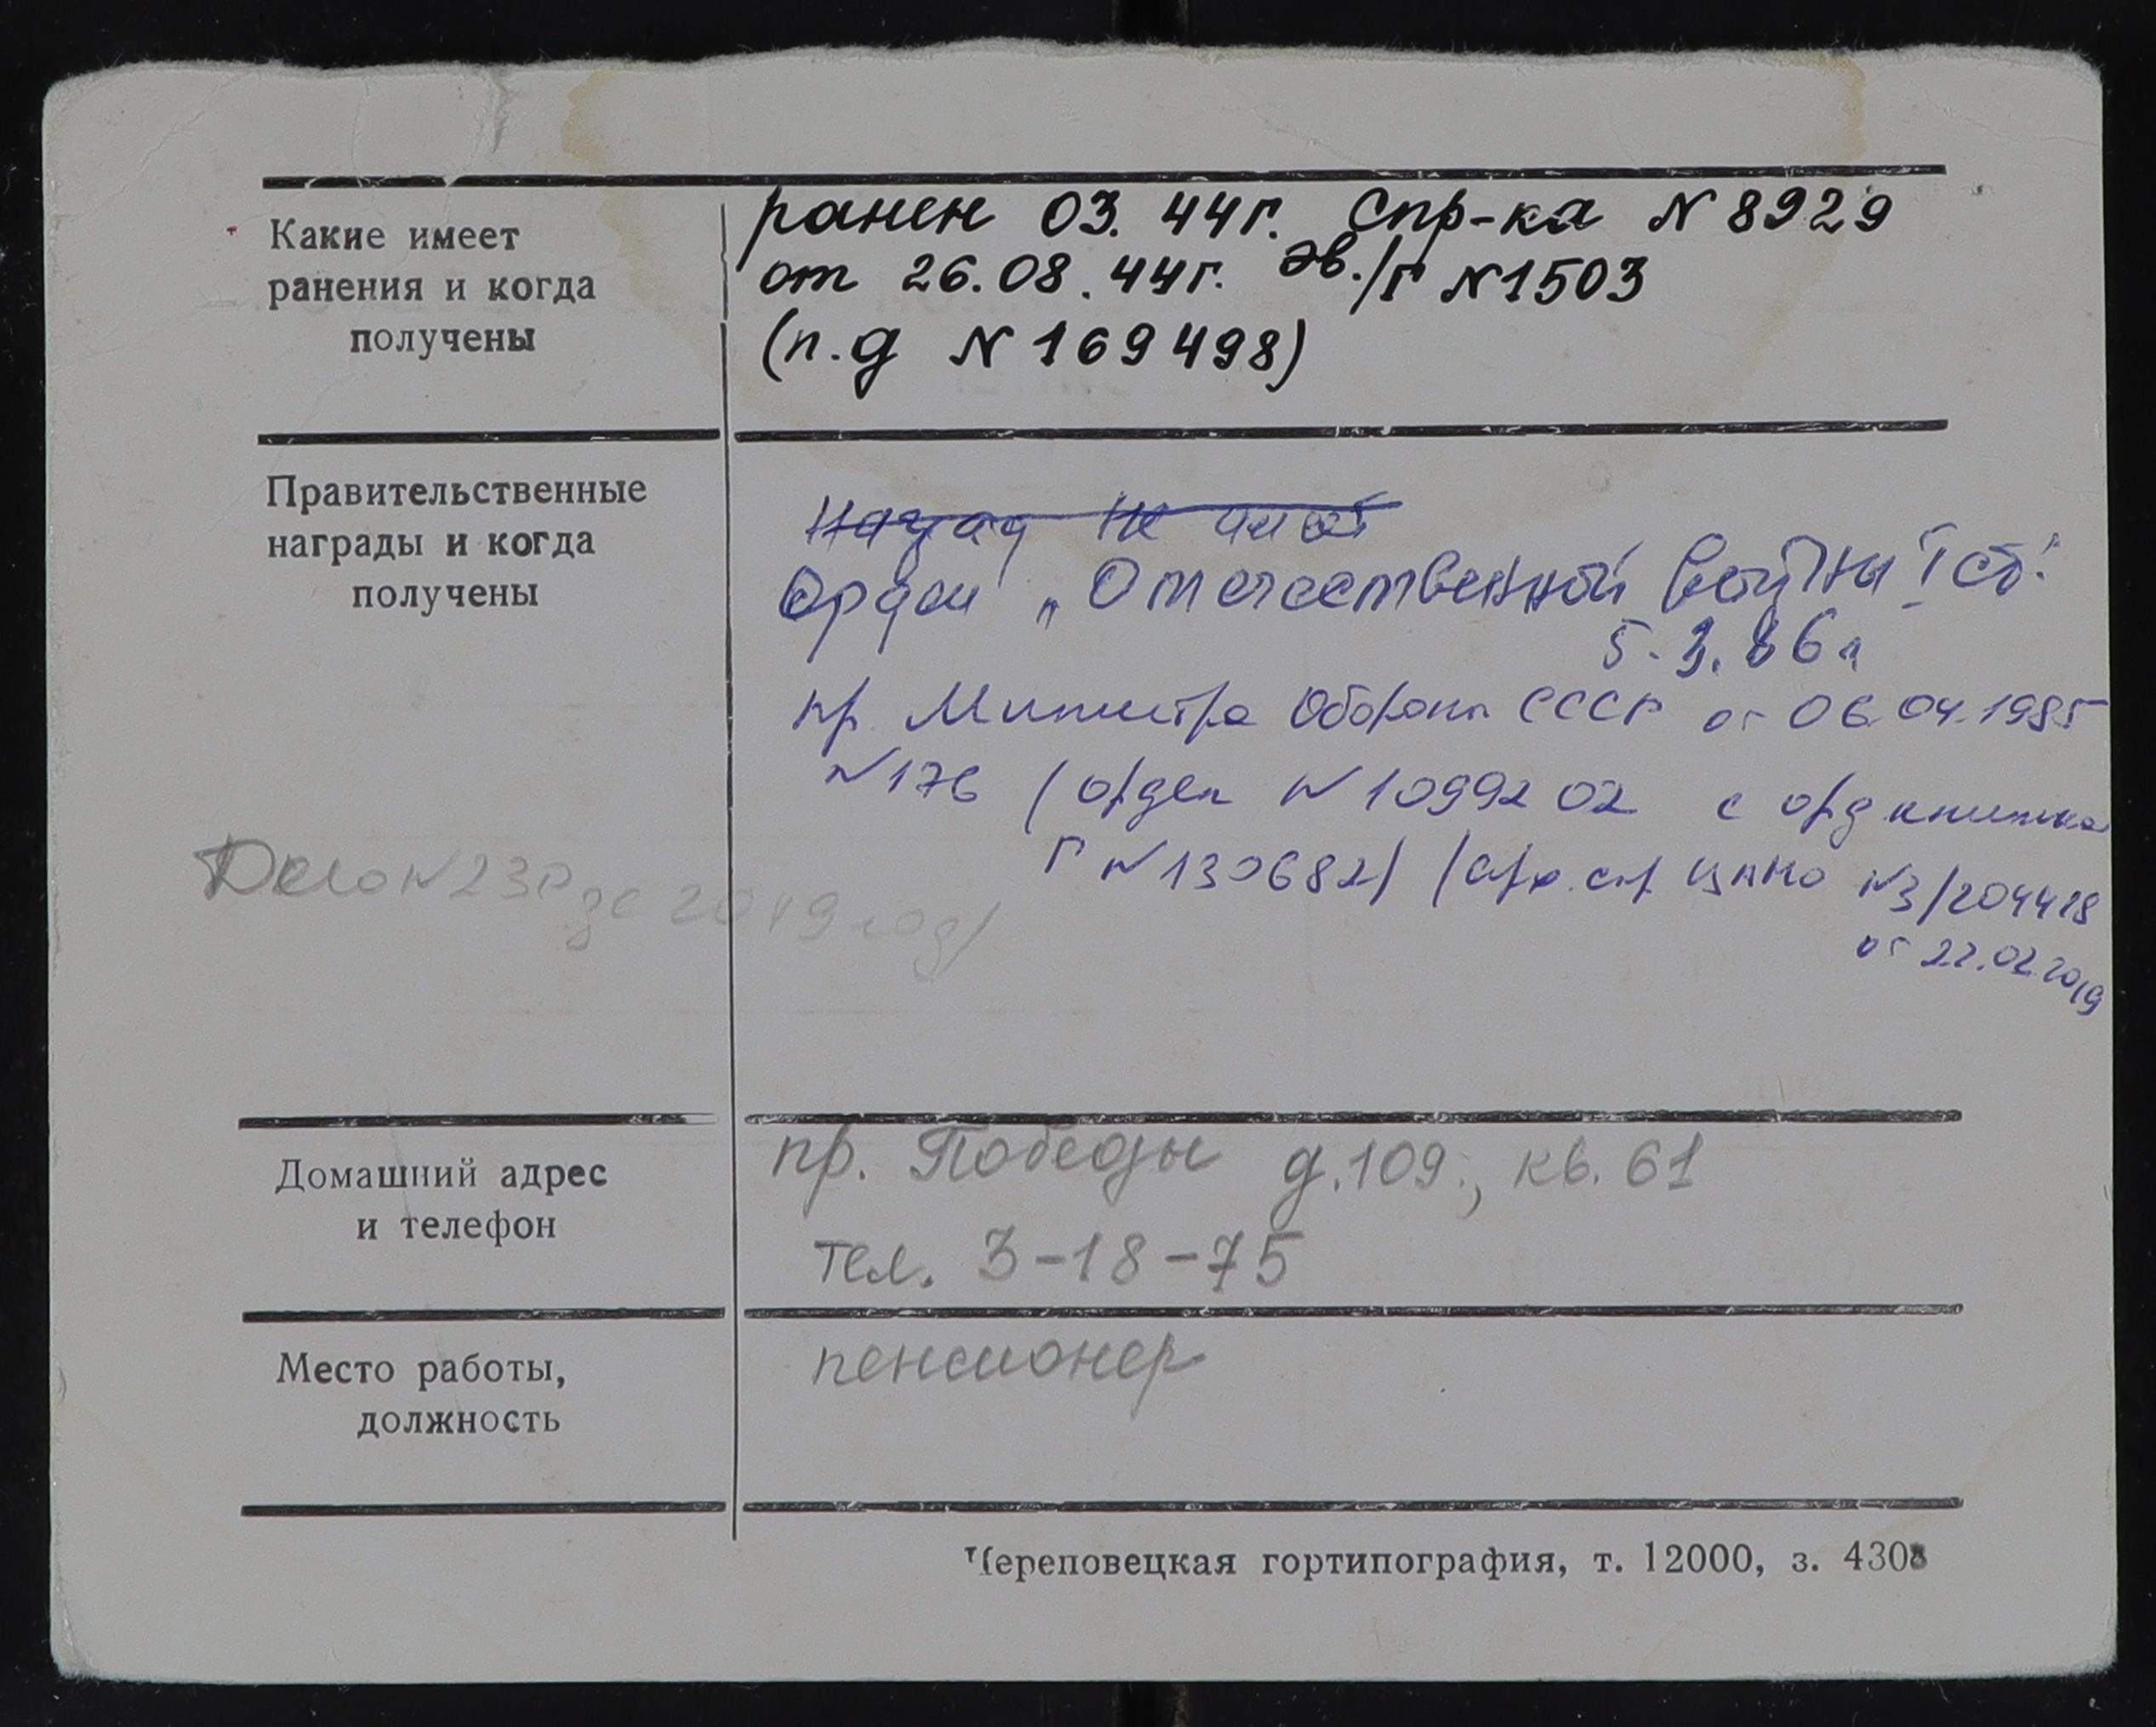 Какие имеет
ранения и когда
получены
ранен 03. 44г. Спр-ка N 8929
от 26.08.44г. Эв./Г N1503
(п.д N 169498)
Правительственные
награды и когда
получены
Наград не имеет
Орден „Отечественной войны I ст."
5.3.86г
пр. Министра Обороны СССР от 06.04.1985
N176 (орден N 1099202 с орд книжка
Г N130682) (арх. спр ЦАМО N3/204418
от 22.02.2019
Дело N 23 за 2019 год)
Домашний адрес
и телефон
пр. Победы д.109, кв. 61
тел. 3-18-75
Место работы,
должность
пенсионер
Череповецкая гортипография, т. 12000, з. 4308